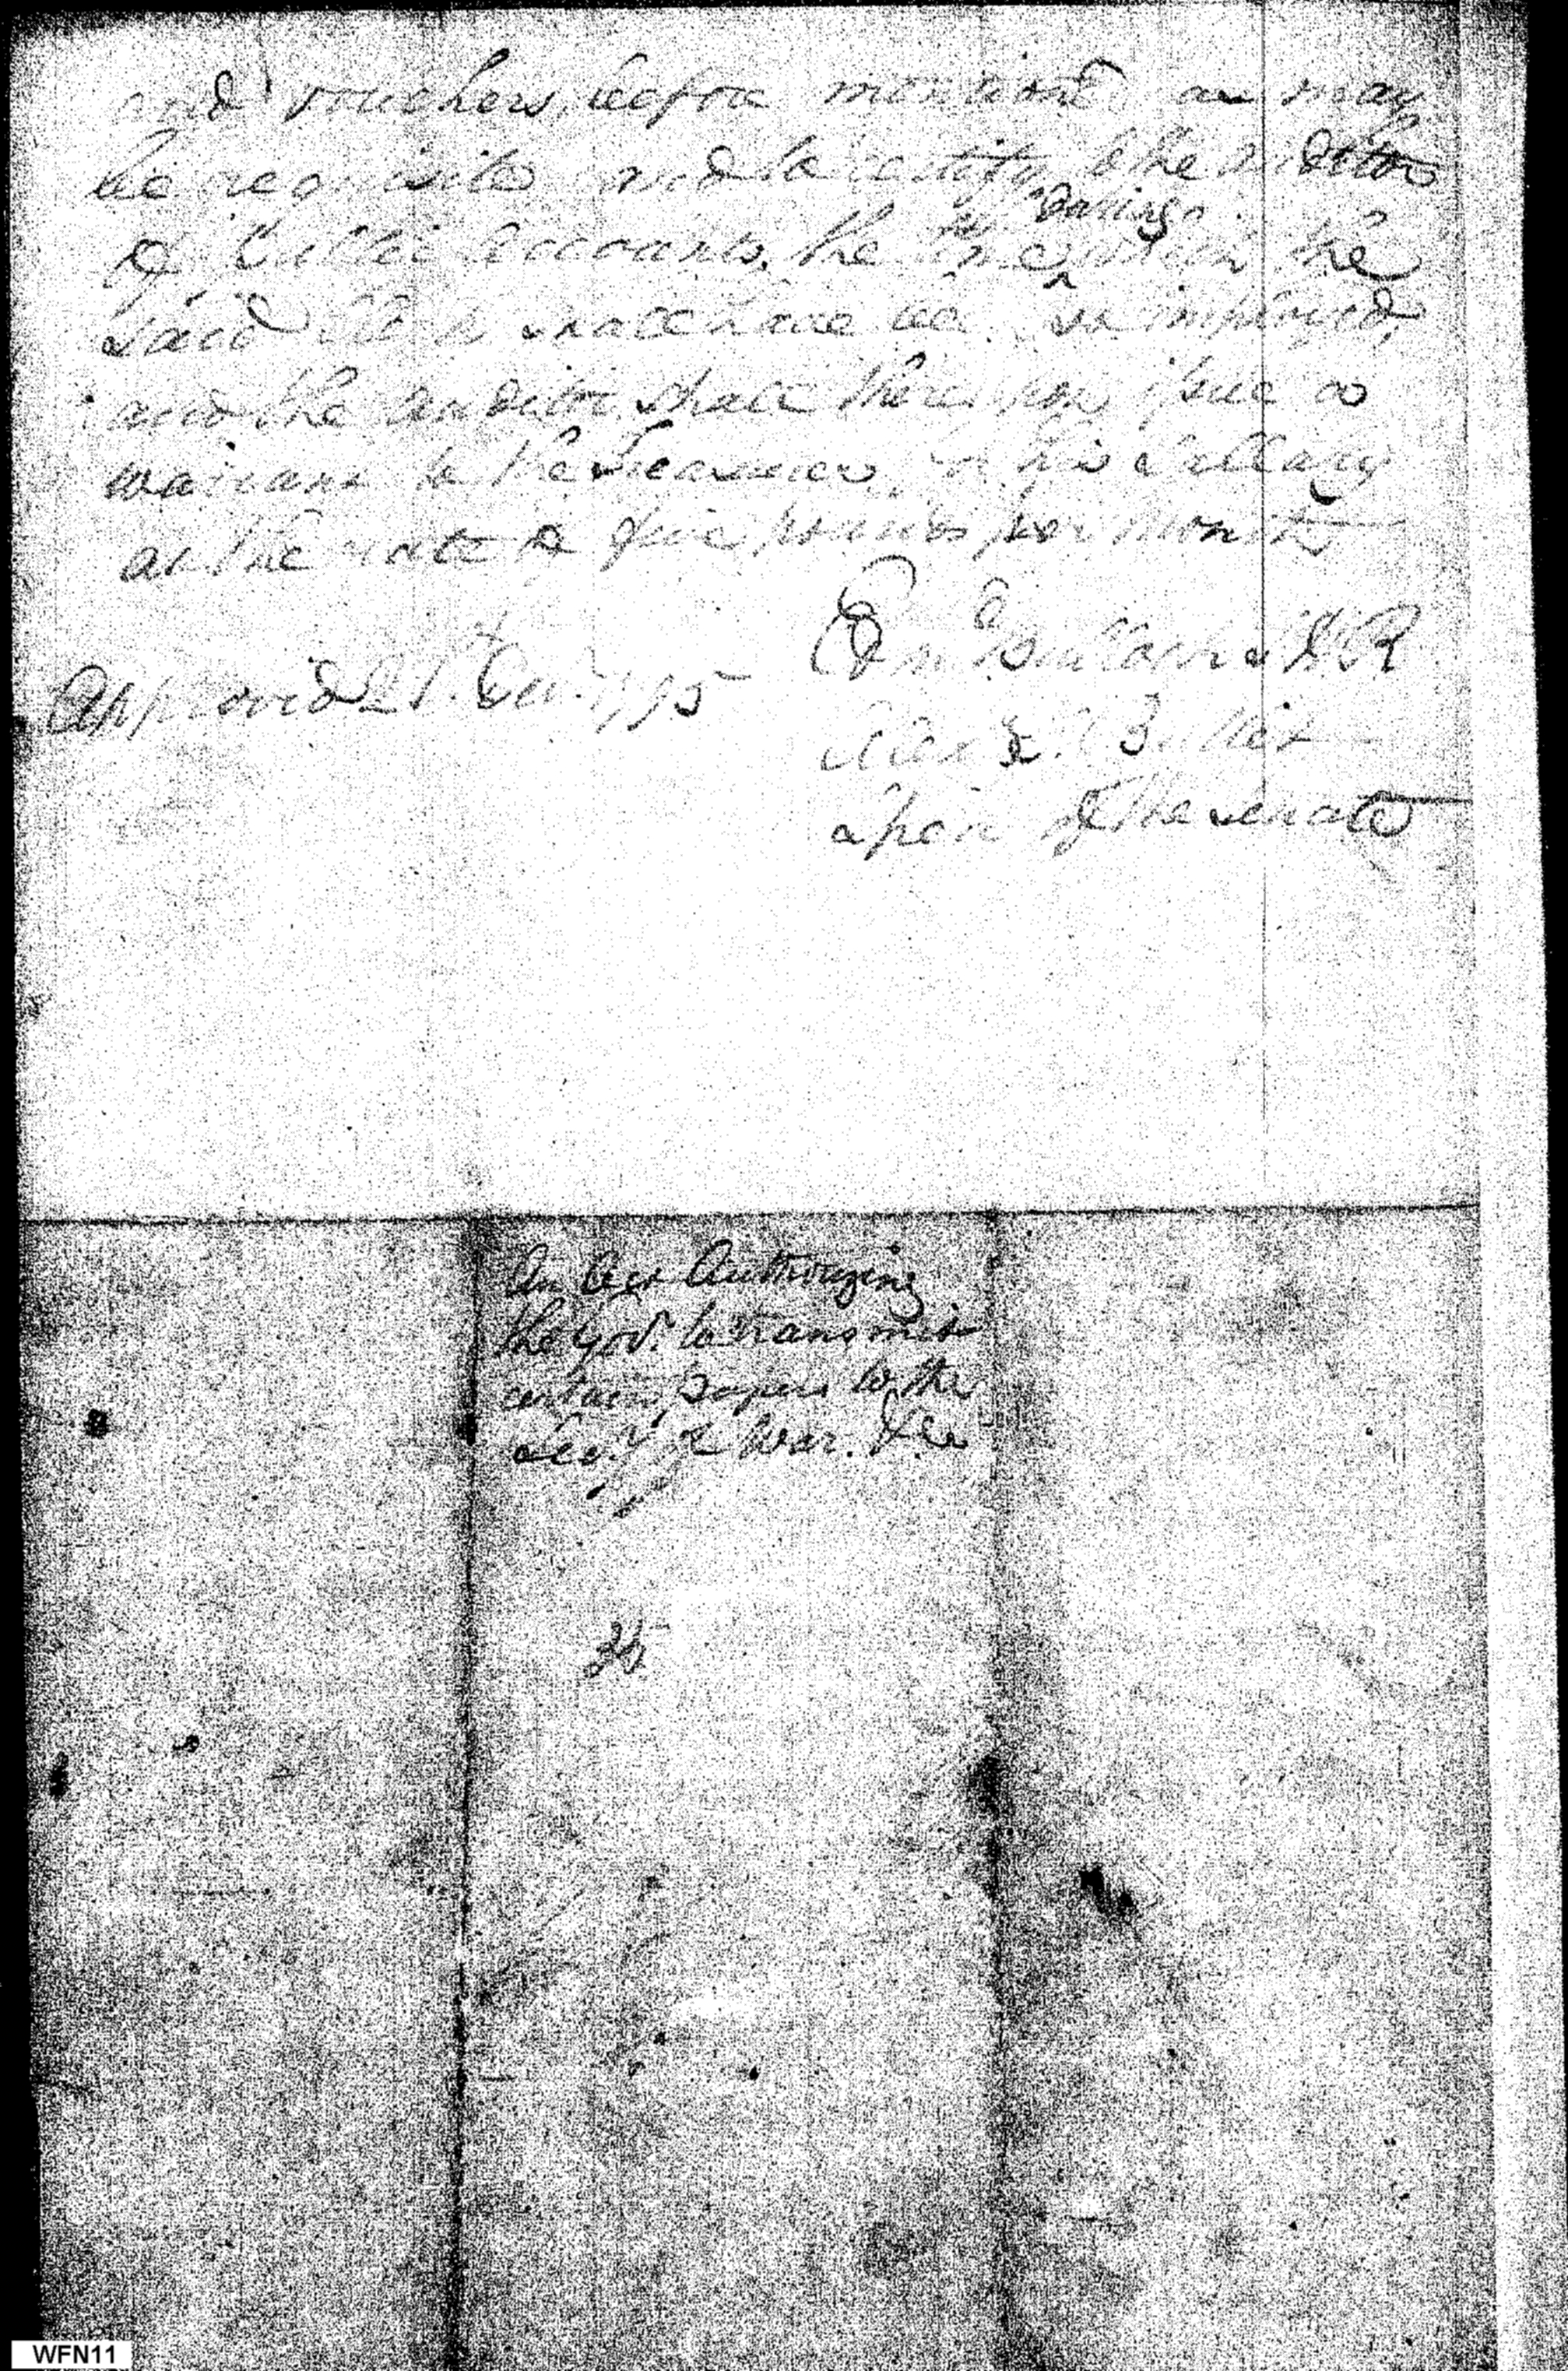 and vouchers before mentioned as may
be requisite and to certify to the Auditor
of Public accounts, the time during which the
said Clerk shall have been so employed,
and the auditor shall thereupon issue a
warrant to the Treasurer, for his Sallary
at the rate of five pounds per month
Edm^d Bullock S.H.R
Approved 21st Dec^r 1795
Alex^r S. Bullitt
Speak^r of the Senate
An Act Authorizing
the Gov^r. to transmit
certain papers to the
Sec^y of War. &c
WFN11